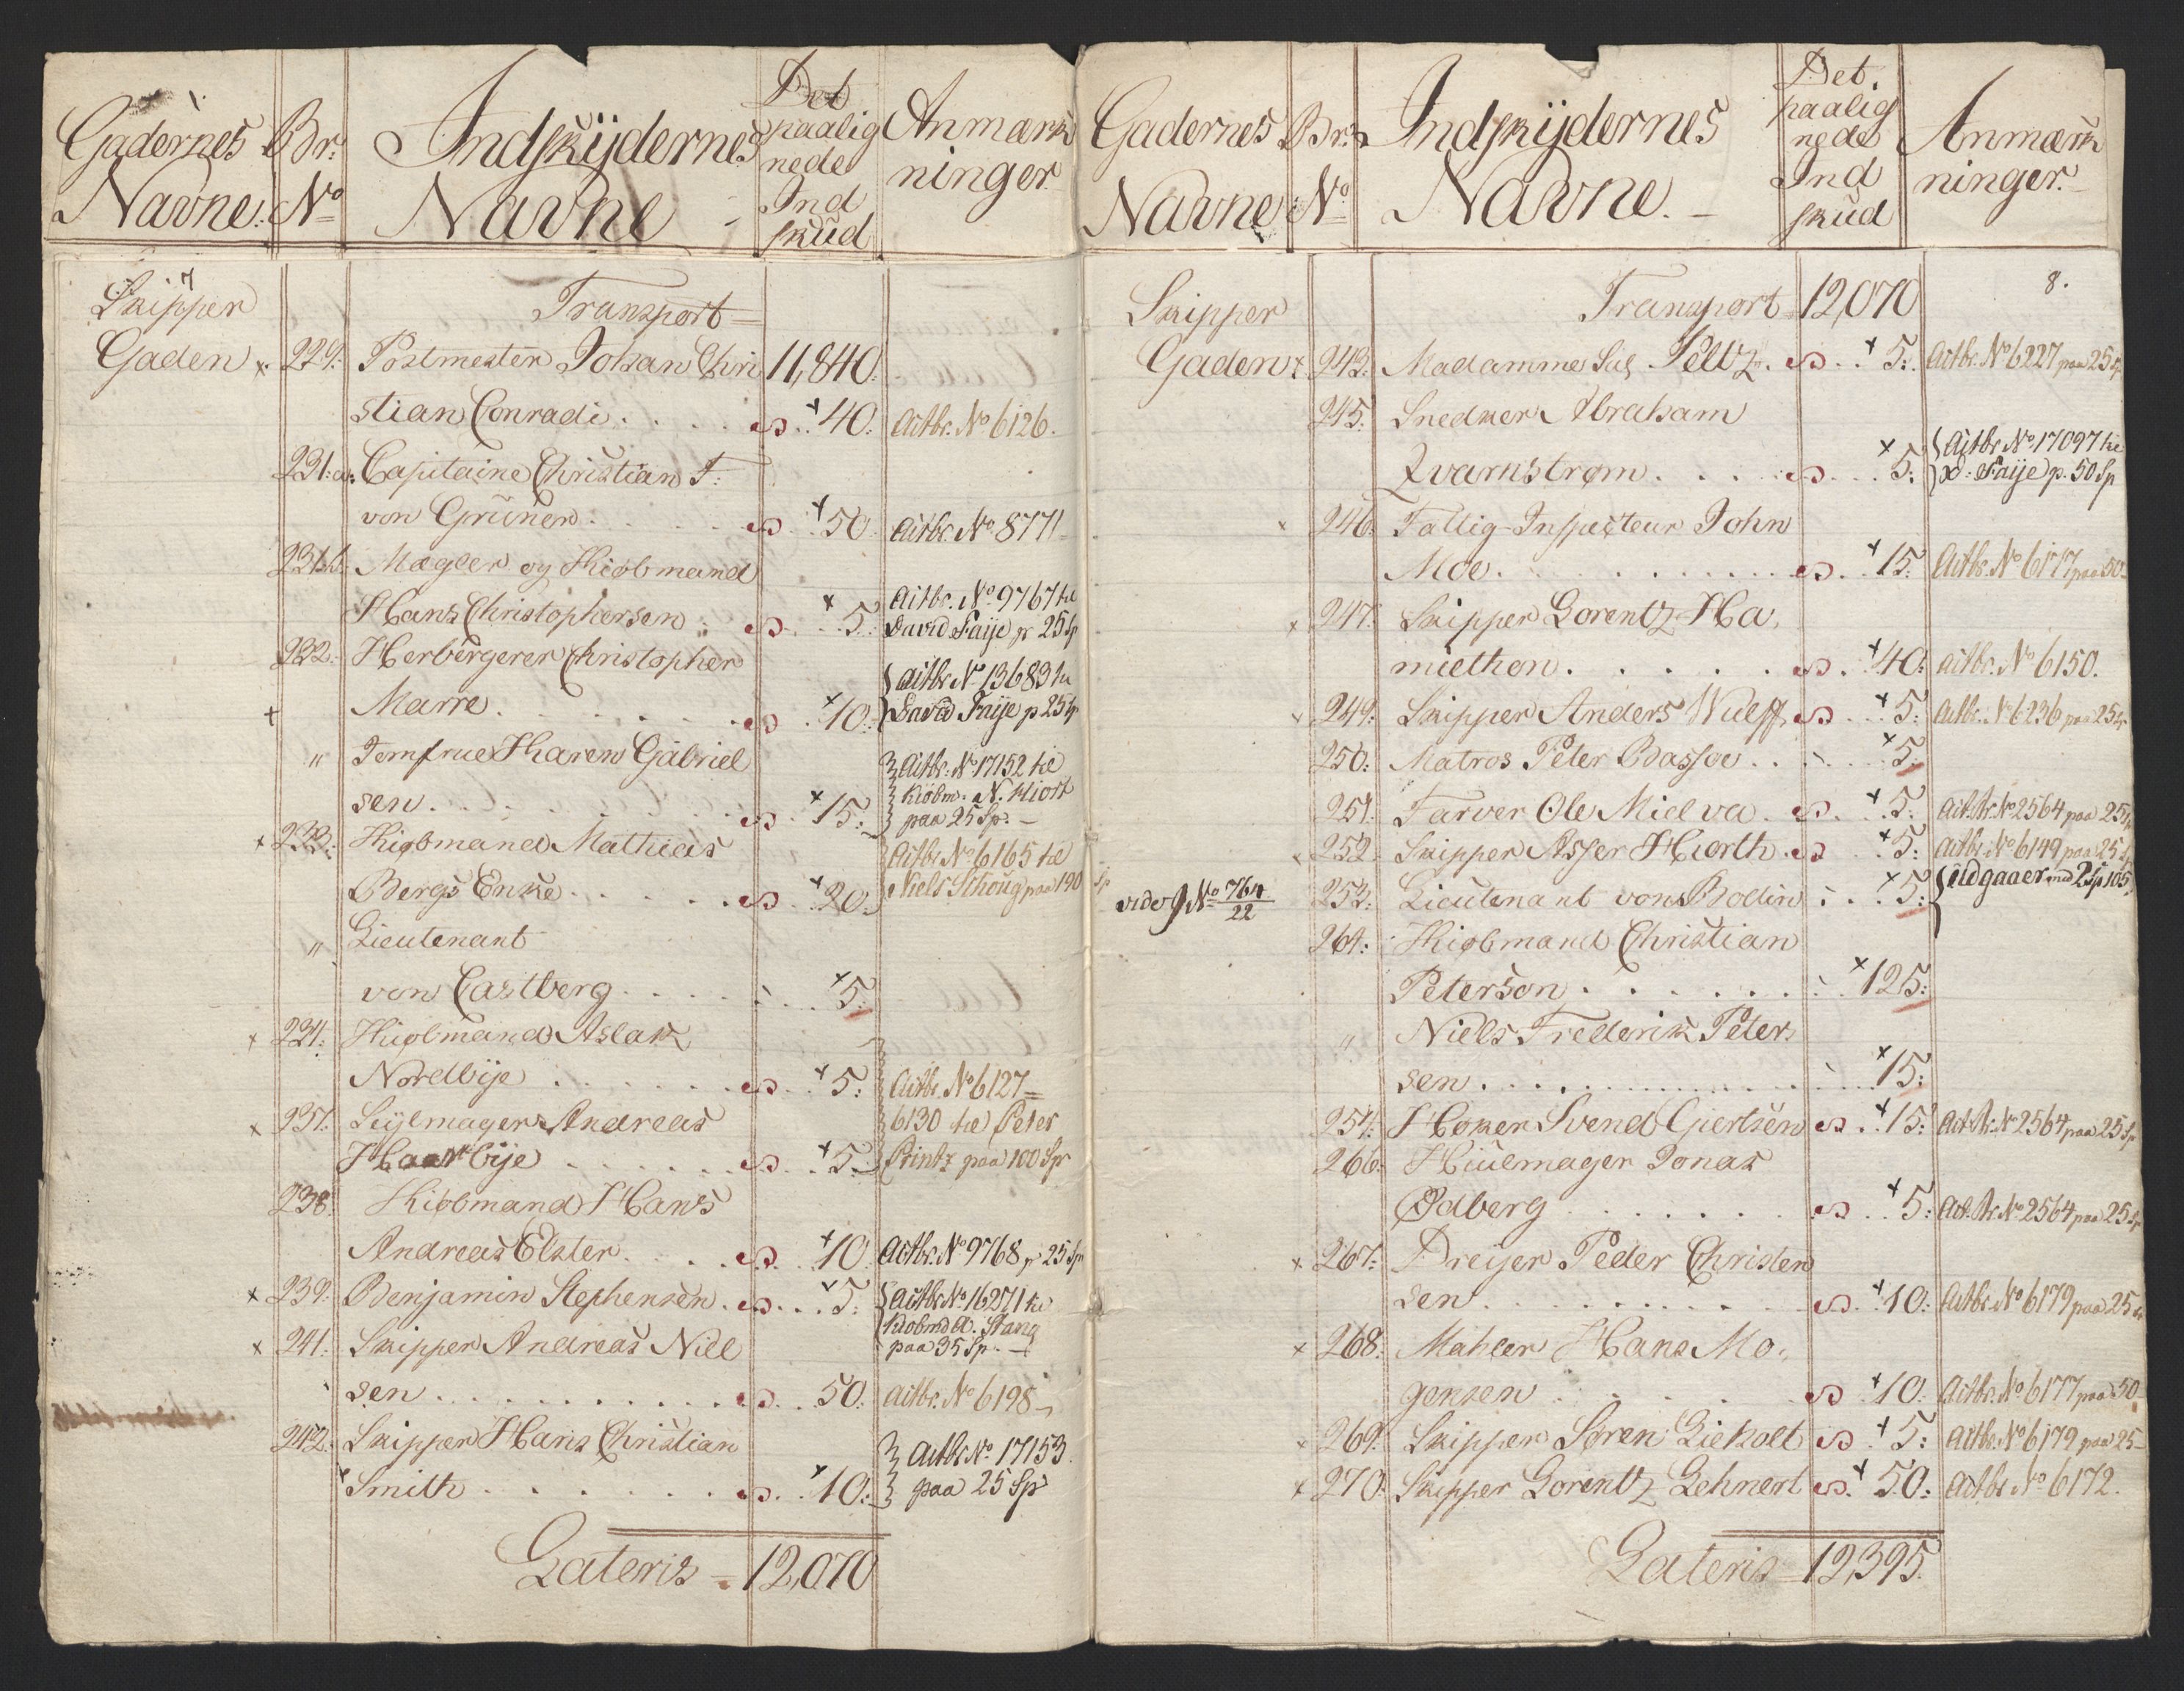 Gadernes Br: Indskÿdernes Det paalig Anmærk
Navne. No Navne nede Ind skud ninger.
7
Skipper Transport
Gaden x 229. Postmester Johan Chri 11,840.
stian Conradi . . . . 40. Actbr. No 6126.
231.a. Capitaine Christian F.
von Grünen . . . 50 Actbr. No 8771
231.b. Mægler og Kiøbmand
Hans Christophersen . . 5. Actbr. No 9767 til
David Faÿe p 25 Sp
232. Herbergerer Christopher
Marre . . . . 10. Actbr No 13683 til
David Faije p 25 Sp
" Jomfrue Karen Gabriel
sen . . . . 15. Actbr. No 17152 til
Kiøbm. N. Kiort
paa 25 Sp. —
x 233. Kiøbmand Mathias
Bergs Enke . . . . 20. Actbr No 6165 til
Niels Sthoug paa 190 Sp
" Lieutenant
von Castberg . . . . 5.
x 234. Kiøbmand Aslak
Nordbÿe . . . . 5. Actbr. No 6127 =
x 237. Seÿlmager Andreas 6130 til Peter
Haarbÿe . . . . 5. Printz paa 100 Sp
238. Kiøbmand Hans
Andreas Elster . . . 10. Actbr. No 9768 p 25 Sp
x 239. Benjamin Stephensen . . . 5. Actbr No 16271 til
Kiobmd A. Stang
x 241. Skipper Andreas Niel paa 35 Sp. —
sen . . . . 50. Actbr. No 6198
242. Skipper Hans Christian
Smith . . . . 10. Actbr No 17153.
paa 25 Sp
Lateris = 12,070
Gadernes Br: Indskÿdernes Det paalig Anmærk
Navne No Navne. nede Ind skud ninger.
8.
Skipper Transport 12,070
Gaden x 243. Madamme Sal. Peltz . . 5. Actbr. No 6227 paa 25 Sp
245. Snedker Abraham
Qvarnstrøm . . . . 5. Actbr No 17097 til
D. Faije p. 50 Sp
x 246. Fattig-Inspecteur John
Moe . . . . 15. Actbr. No 6177 paa 50
x 247. Skipper Lorentz Ha,
miethon . . . . 40. Actbr. No 6150.
249. Skipper Anders Wulff . . 5. Actbr. No 6236 paa 25 Sp.
250. Matros Peter Bassøe . . . 5.
251. Farver Ole Mielva . . 5. Act.Br. No 2564 paa 25 Sp
252. Skipper Asser Hiorth . . 5. Actbr. No 6149 paa 25 Sp
vide No 764/22 253. Lieutenant von Bodin . . 5. udgaaer med 2 Sp 105
264. Kiøbmand Christian
Peterson . . . . 125.
" Niels Frederik Peter
sen . . . . 15.
254. Høker Svend Giertsen . . 15. Act.Br. No 2564 paa 25 Sp
266. Hiulmager Jonas
Ødberg . . . . 5. Act.Br. No 2564 paa 25 Sp
x 267. Dreijer Peder Christen
sen . . . . 10. Actbr. No 6179 paa 25
x 268. Mahler Hans Mo,
gensen . . . . 10. Actbr. No 6177 paa 50
x 269. Skipper Søren Liekolt . . 5. Actbr. No 6179 paa 25
x 270. Skipper Lorentz Lehnert . . 50. Actbr No 6172.
Lateris = 12,395.